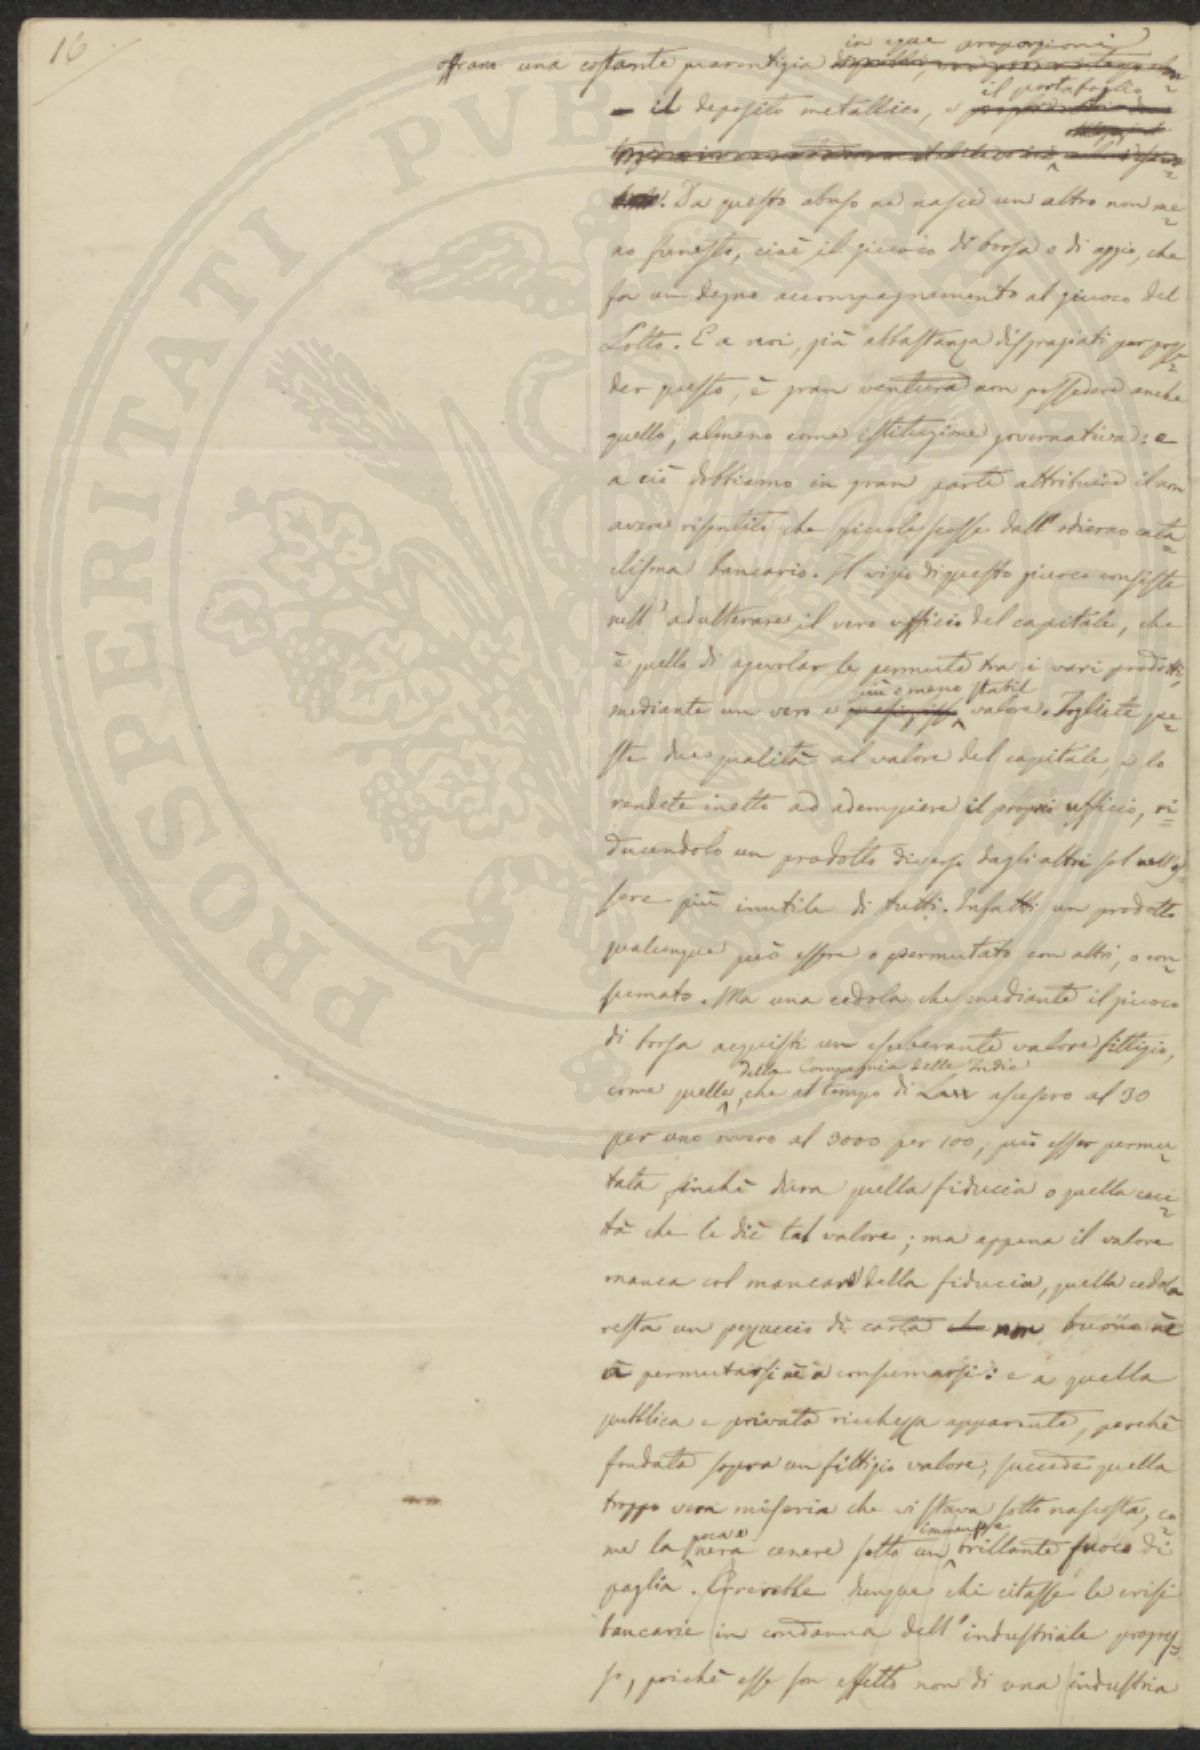 16
in eque proporzioni
offrano una costante guarentigia
il portafoglio
il deposito metallico, e
Da questo abuso ne nasce un altro non me=
no funesto, cioè il giuoco di borsa o di aggio, che
fa un degno accompagnamento al giuoco del
Lotto. E a noi, già abbastanza disgraziati per posse=
der questo, è gran ventura non possedere anche
quello, almeno come istituzione governativa: e
a ciò dobbiamo in gran parte attribuire il non
avere risentito che piccole scosse dall'odierno cata=
clisma bancario. Il vizio di questo giuoco consiste
nell'adulterare il vero ufficio del capitale, che
è quello di agevolar le permute tra i vari prodotti,
più o meno stabil
mediante un vero e valore. Togliete que=
ste due qualità al valore del capitale, e lo
rendete inetto ad adempiere il proprio ufficio, ri=
ducendolo un prodotto diverso dagli altri sol nell'es=
sere più inutile di tutti. Infatti un prodotto
qualunque può essere o permutato con altri, o con=
sumato. Ma una cedola che mediante il giuoco
di borsa acquisti un esuberante valore fittizio,
della Compagnia delle Indie
come quelle, che al tempo di Law ascesero al 30
per uno ovvero al 3000 per 100, può esser permu=
tata finchè dura quella fiducia o quella ceci=
tà che le diè tal valore; ma appena il valore
manca col mancare della fiducia, quella cedola
resta un pezzuccio di carta non buono nè
a permutarsi nè a consumarsi: e a quella
pubblica e privata ricchezza apparente, perchè
fondata sopra un fittizio valore, succede quella
troppo vera miseria che vi stava sotto nascosta, co=
poca e immenso
me la nera cenere sotto un brillante fuoco di
paglia. Errerebbe dunque chi citasse le crisi
bancarie in condanna dell'industriale progres=
so, poichè esse son effetto non di una industria